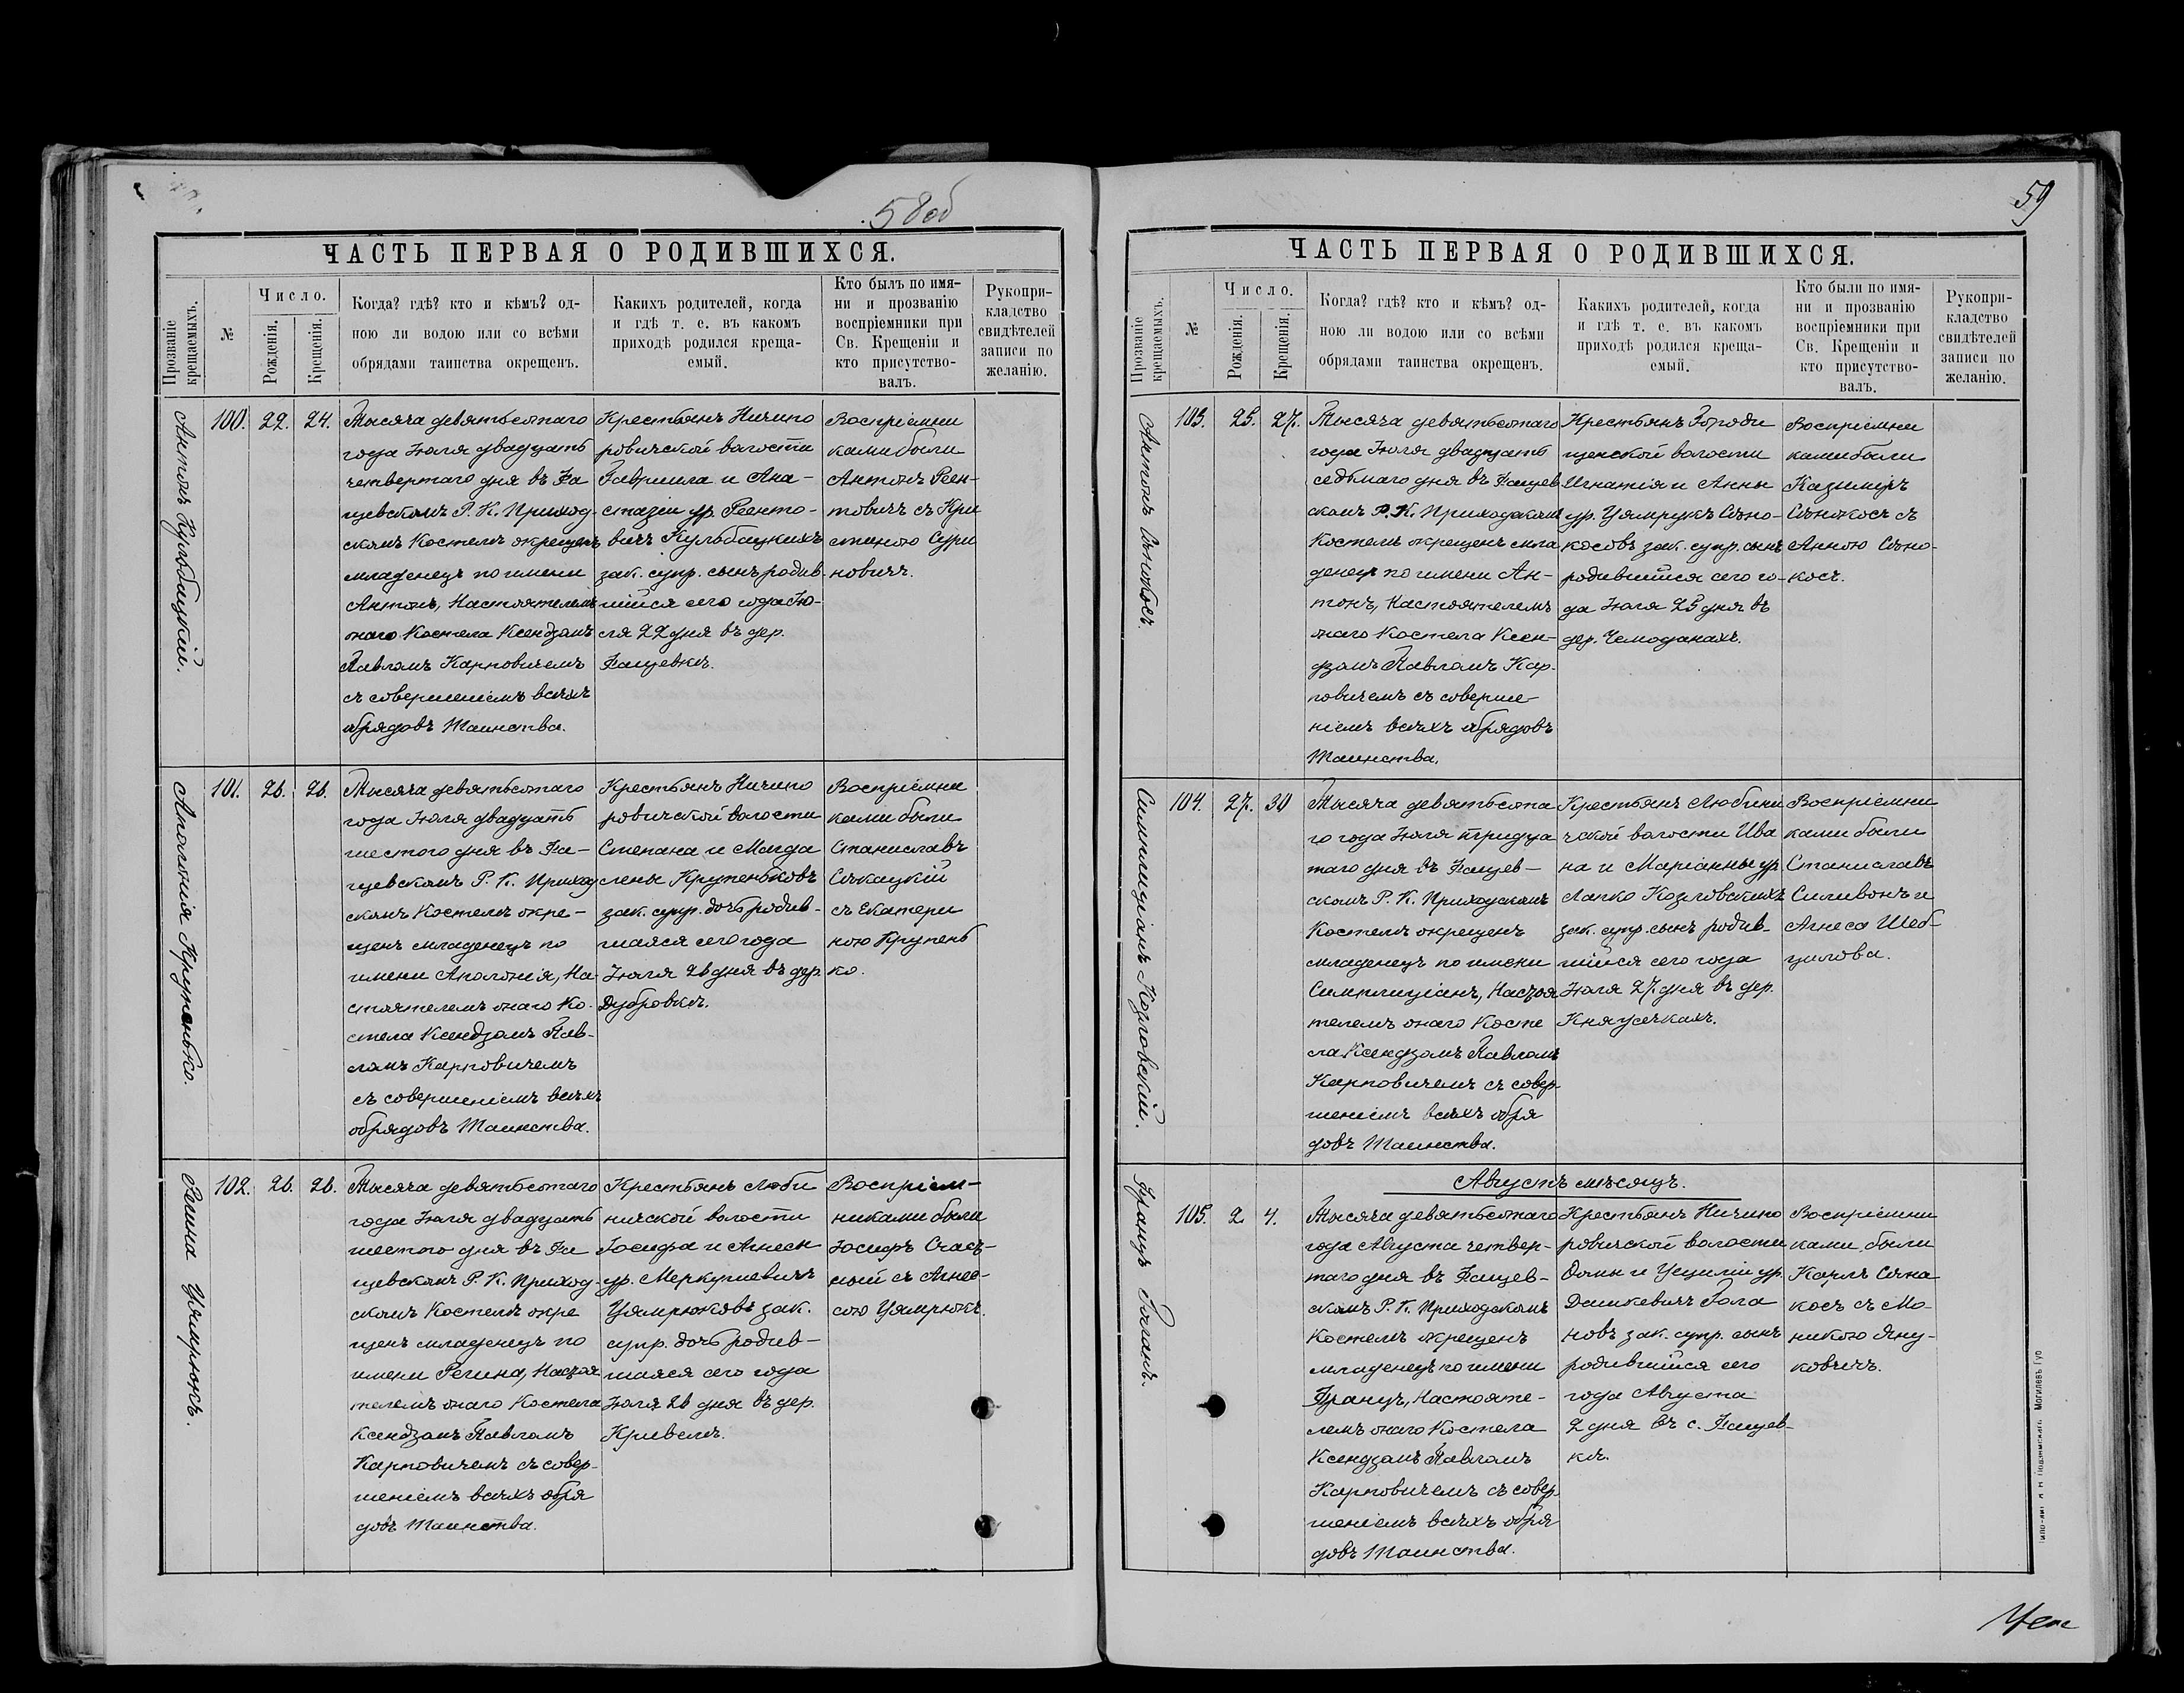 58об
ЧАСТЬ ПЕРВАЯ О РОДИВШИХСЯ.
Прозваніе крещаемыхъ.
№
Число.
Рожденія.
Крещенія.
Когда? гдѣ? кто и кѣмъ? од-
ною ли водою или со всѣми
обрядами таинства окрещенъ.
Какихъ родителей, когда
и гдѣ т. е. въ какомъ
приходѣ родился креща-
емый.
Кто былъ по имя-
ни и прозванію
воспріемники при
Св. Крещеніи и
кто присутство-
валъ.
Рукопри-
кладство
свидѣтелей
записи по
желанію.
Антонъ Кульбацкій.
100.
22.
24.
Тысяча девятьсотаго
года Іюля двадцать
четвертаго дня въ Фа
щевскомъ Р. К. Приход-
скомъ Костелѣ окрещенъ
младенецъ по имени
Антонъ, Настоятелемъ
онаго Костела Ксендзомъ
Павломъ Карповичемъ
съ совершеніемъ всѣхъ
обрядовъ Таинства.
Крестьянъ Ничипо
ровичской волости
Гавріила и Ана-
стазіи ур. Реенто-
вичъ Кульбацкихъ
зак. супр. сынъ родив-
шійся сего года Ію-
ля 22 дня въ дер.
Фащевкѣ.
Воспріемни
ками были
Антонъ Реен-
товичъ съ Кри
стиною Сури
новичъ.
Аполонія Крупенько.
101.
26.
26.
Тысяча девятьсотаго
года Іюля двадцать
шестого дня въ Фа-
щевскомъ Р. К. Приход
скомъ Костелѣ окре-
щенъ младенецъ по
имени Аполонія, На-
стоятелемъ онаго Ко-
стела Ксендзомъ Пав-
ломъ Карповичемъ
съ совершеніемъ всѣхъ
обрядовъ Таинства.
Крестьянъ Ничипо
ровичской волости
Степана и Магда
лены Крупеньковъ
зак. супр. дочь родив-
шаяся сего года
Іюля 26 дня въ дер
Дубровкѣ.
Воспріемни
ками были
Станиславъ
Сѣкацкій
съ Екатери
ною Крупень
ко.
Регина Цямрюкъ.
102.
26.
26.
Тысяча девятьсотаго
года Іюля двадцать
шестого дня въ Фа
щевскомъ Р. К. Приход-
скомъ Костелѣ окре
щенъ младенецъ по
имени Регина, Настоя
телемъ онаго Костела
Ксендзомъ Павломъ
Карповичемъ съ совер-
шеніемъ всѣхъ обря
довъ Таинства.
Крестьянъ Люби
ничской волости
Іосифа и Агнесы
ур. Меркушевичъ
Цямрюковъ зак.
супр. дочь родив-
шаяся сего года
Іюля 26 дня въ дер.
Кривелѣ.
Воспріем-
никами были
Іосифъ Счас-
ный съ Агнес-
сою Цямрюкъ.
59
ЧАСТЬ ПЕРВАЯ О РОДИВШИХСЯ.
Прозваніе крещаемыхъ.
№
Число.
Рожденія.
Крещенія.
Когда? гдѣ? кто и кѣмъ? од-
ною ли водою или со всѣми
обрядами таинства окрещенъ.
Какихъ родителей, когда
и гдѣ т. е. въ какомъ
приходѣ родился креща-
емый.
Кто были по имя-
ни и прозванію
воспріемники при
Св. Крещеніи и
кто присутство-
валъ.
Рукопри-
кладство
свидѣтелей
записи по
желанію.
Антонъ Сѣнокосъ.
103.
25.
27.
Тысяча девятьсотаго
года Іюля двадцать
седьмаго дня въ Фащев
скомъ Р. К. Приходскомъ
Костелѣ окрещенъ мла
денецъ по имени Ан-
тонъ, Настоятелемъ
онаго Костела Ксен-
дзомъ Павломъ Кар-
повичемъ съ соверше-
ніемъ всѣхъ обрядовъ
Таинства.
Крестьянъ Городи
щенской волости
Игнатія и Анны
ур. Цямрукъ Сѣно-
косовъ зак. супр. сынъ
родившійся сего го-
да Іюля 25 дня въ
дер. Чемоданахъ.
Воспріемни
ками были
Казимиръ
Сѣнокосъ съ
Анною Сѣно-
косъ.
Симплиціанъ Козловскій.
104.
27.
30
Тысяча девятьсота
го года Іюля тридца
таго дня въ Фащев-
скомъ Р. К. Приходскомъ
Костелѣ окрещенъ
младенецъ по имени
Симплиціанъ, Настоя
телемъ онаго Косте
ла Ксендзомъ Павломъ
Карповичемъ съ совер-
шеніемъ всѣхъ обря
довъ Таинства.
Крестьянъ Любини
чской волости Ива
на и Маріанны ур.
Лапко Козловскихъ
зак. супр. сынъ родив-
шійся сего года
Іюля 27 дня въ дер.
Княжечкахъ.
Воспріемни
ками были
Станиславъ
Силивонъ и
Агнеса Шеб-
цилова.
Августъ мѣсяцъ.
Францъ Голанъ.
105.
2.
4.
Тысяча девятьсотаго
года Августа четвер-
таго дня въ Фащев-
скомъ Р. К. Приходскомъ
Костелѣ окрещенъ
младенецъ по имени
Францъ, Настояте-
лемъ онаго Костела
Ксендзомъ Павломъ
Карповичемъ съ совер-
шеніемъ всѣхъ обря
довъ Таинства.
Крестьянъ Ничипо
ровичской волости
Фомы и Цециліи ур.
Дашкевичъ Гола
новъ зак. супр. сынъ
родившійся сего
года Августа
2 дня въ с. Фащев-
кѣ.
Воспріемни
ками были
Карлъ Сѣно
косъ съ Мо-
никою Яну-
ковичъ.